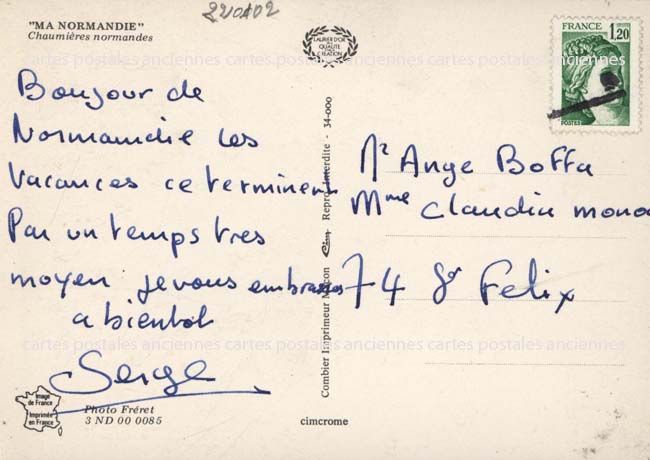 "MA NORMANDIE"
Chaumières normandes
220A02
LAURIER D'OR
de QUALITÉ
CRÉATION
FRANCE
1,20
POSTES
cartes postales anciennes cartes postales anciennes cartes postales anciennes cartes postales anciennes
Bonjour de
Normandie les
vacances ce terminent
Par un temps tres
moyen je vous embrasses
a bientot
Serge
Mr Ange Boffa
Mme Claudia
74 St Felix
Combier Imprimeur Mâcon Cim Reprod. Interdite - 34-000
cartes postales anciennes cartes postales anciennes cartes postales anciennes cartes postales anciennes
Image
de France
Imprimée
en France
Photo Fréret
3 ND 00 0085
cimcrome